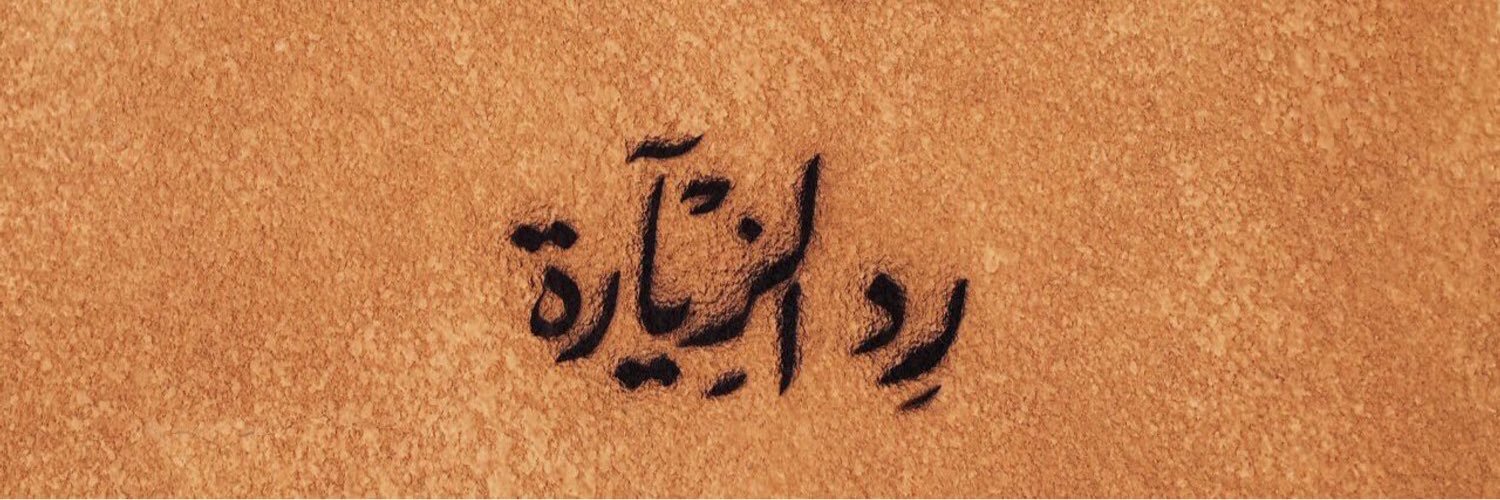 رِد الزِّيآرة